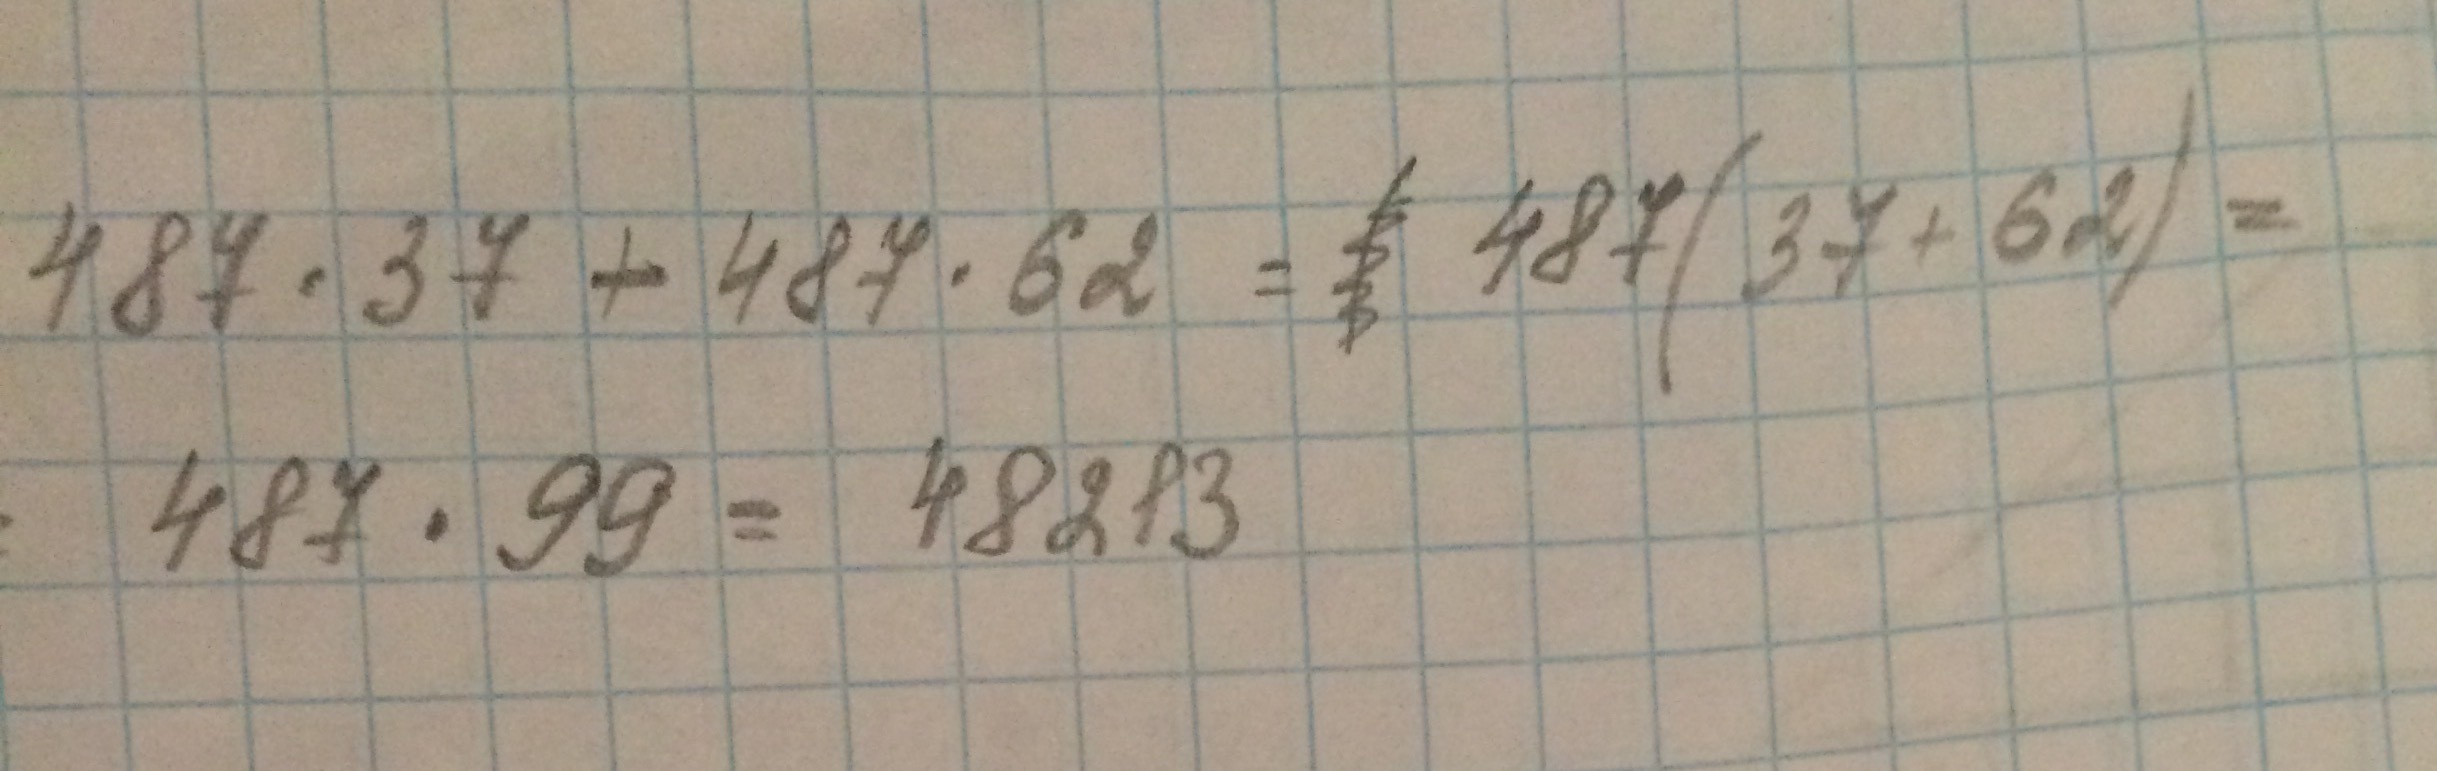 487 · 37 + 487 · 62 = 487(37+62) =
= 487 · 99 = 48213